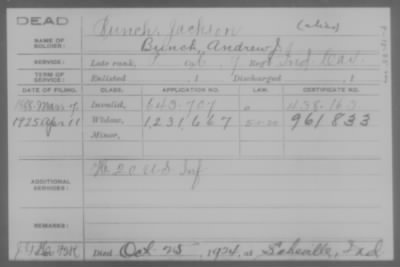 DEAD
Bunch, Jackson (alias)
NAME OF SOLDIER: Bunch, Andrew J.
SERVICE: Late rank, Regt Ind. Cav.
TERM OF SERVICE: Enlisted , 1 Discharged , 1
DATE OF FILING. CLASS. APPLICATION NO. LAW. CERTIFICATE NO.
1888 Invalid, 643.707 438.163
1925 Apr 11 Widow, 1,231,667 961.833
Minor,
ADDITIONAL SERVICES: 20 U S Inf
REMARKS:
Died Oct. 25 1924, at Ind